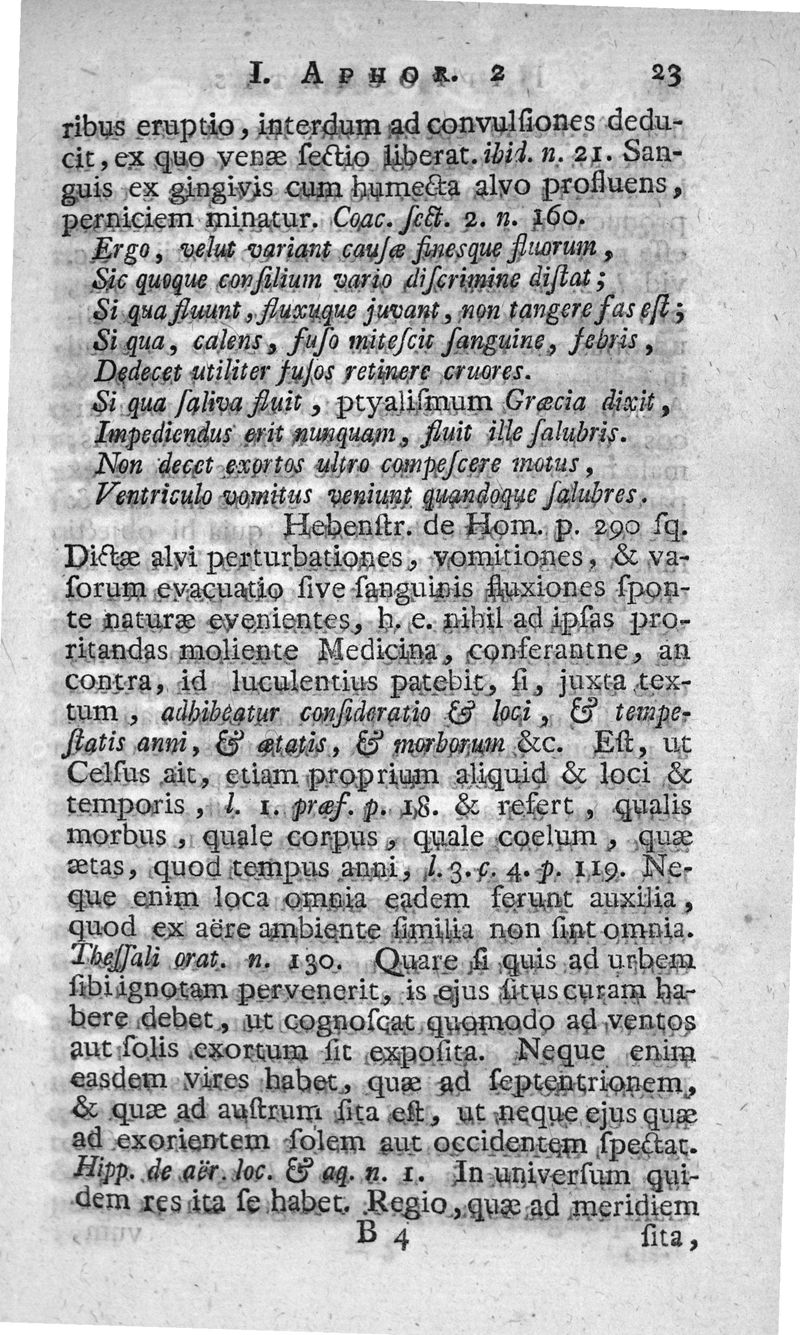 I. APHOR. 2 23
ribus eruptio, interdum ad convulſiones dedu-
cit, ex quo venæ ſectio liberat. ibid. n. 21. San-
guis ex gingivis cum humecta alvo profluens,
perniciem minatur. Coac. ſect. 2. n. 160.
Ergo, velut variant cauſæ fineſque fluorum,
Sic quoque conſilium vario diſcrimine diſtat;
Si qua fluunt, fluxuque juvant, non tangere fas eſt;
Si qua, calens, fuſo miteſcit ſanguine, febris,
Dedecet utiliter fuſos retinere cruores.
Si qua ſaliva fluit, ptyaliſmum Græcia dixit,
Impediendus erit nunquam, fluit ille ſalubris.
Non decet exortos ultro compeſcere motus,
Ventriculo vomitus veniunt quandoque ſalubres.
Hebenſtr. de Hom. p. 290 ſq.
Dictæ alvi perturbationes, vomitiones, & va-
ſorum evacuatio ſive ſanguinis fluxiones ſpon-
te naturæ evenientes, h. e. nihil ad ipſas pro-
ritandas moliente Medicina, conferantne, an
contra, id luculentius patebit, ſi, juxta tex-
tum, adhibeatur conſideratio & loci, & tempe-
ſtatis anni, & ætatis, & morborum &c. Eſt, ut
Celſus ait, etiam proprium aliquid & loci &
temporis, l. 1. præf. p. 18. & refert, qualis
morbus, quale corpus, quale coelum, quæ
ætas, quod tempus anni, l. 3. c. 4. p. 119. Ne-
que enim loca omnia eadem ferunt auxilia,
quod ex aëre ambiente ſimilia non ſint omnia.
Theſſali orat. n. 130. Quare ſi quis ad urbem
ſibi ignotam pervenerit, is ejus ſitus curam ha-
bere debet, ut cognoſcat quomodo ad ventos
aut ſolis exortum ſit expoſita. Neque enim
easdem vires habet, quæ ad ſeptentrionem,
& quæ ad auſtrum ſita eſt, ut neque ejus quæ
ad exorientem ſolem aut occidentem ſpectat.
Hipp. de aër. loc. & aq. n. 1. In univerſum qui-
dem res ita ſe habet. Regio, quæ ad meridiem
B 4 ſita,